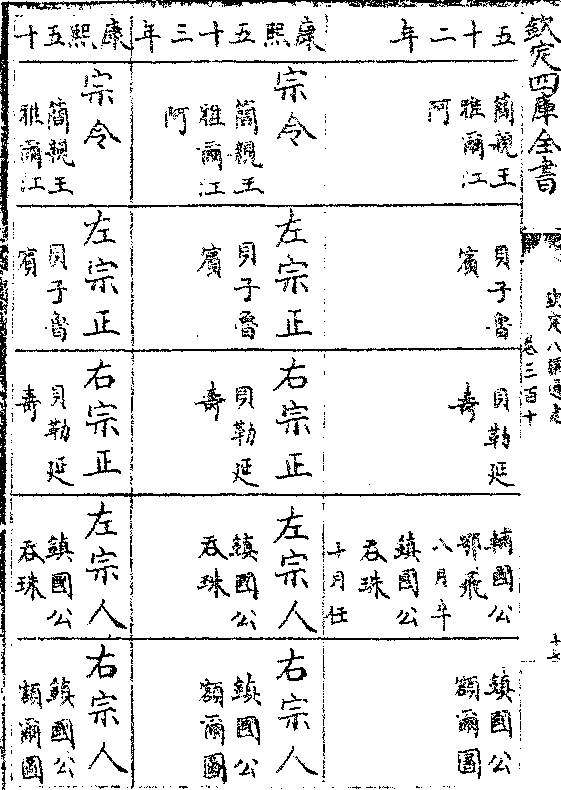 欽定四庫全書
欽定八旗通志
卷三百十
五十二年
簡親王
雅爾江
阿
貝子魯
賓
貝勒延
壽
輔國公
鄂飛
八月卒
鎮國公
吞珠
十月任
鎮國公
額爾圖
康熙五十三年
宗令
簡親王
雅爾江
阿
左宗正
貝子魯
賓
右宗正
貝勒延
壽
左宗人
鎮國公
吞珠
右宗人
鎮國公
額爾圖
康熙五十
宗令
簡親王
雅爾江
左宗正
貝子魯
賓
右宗正
貝勒延
壽
左宗人
鎮國公
吞珠
右宗人
鎮國公
額爾圖